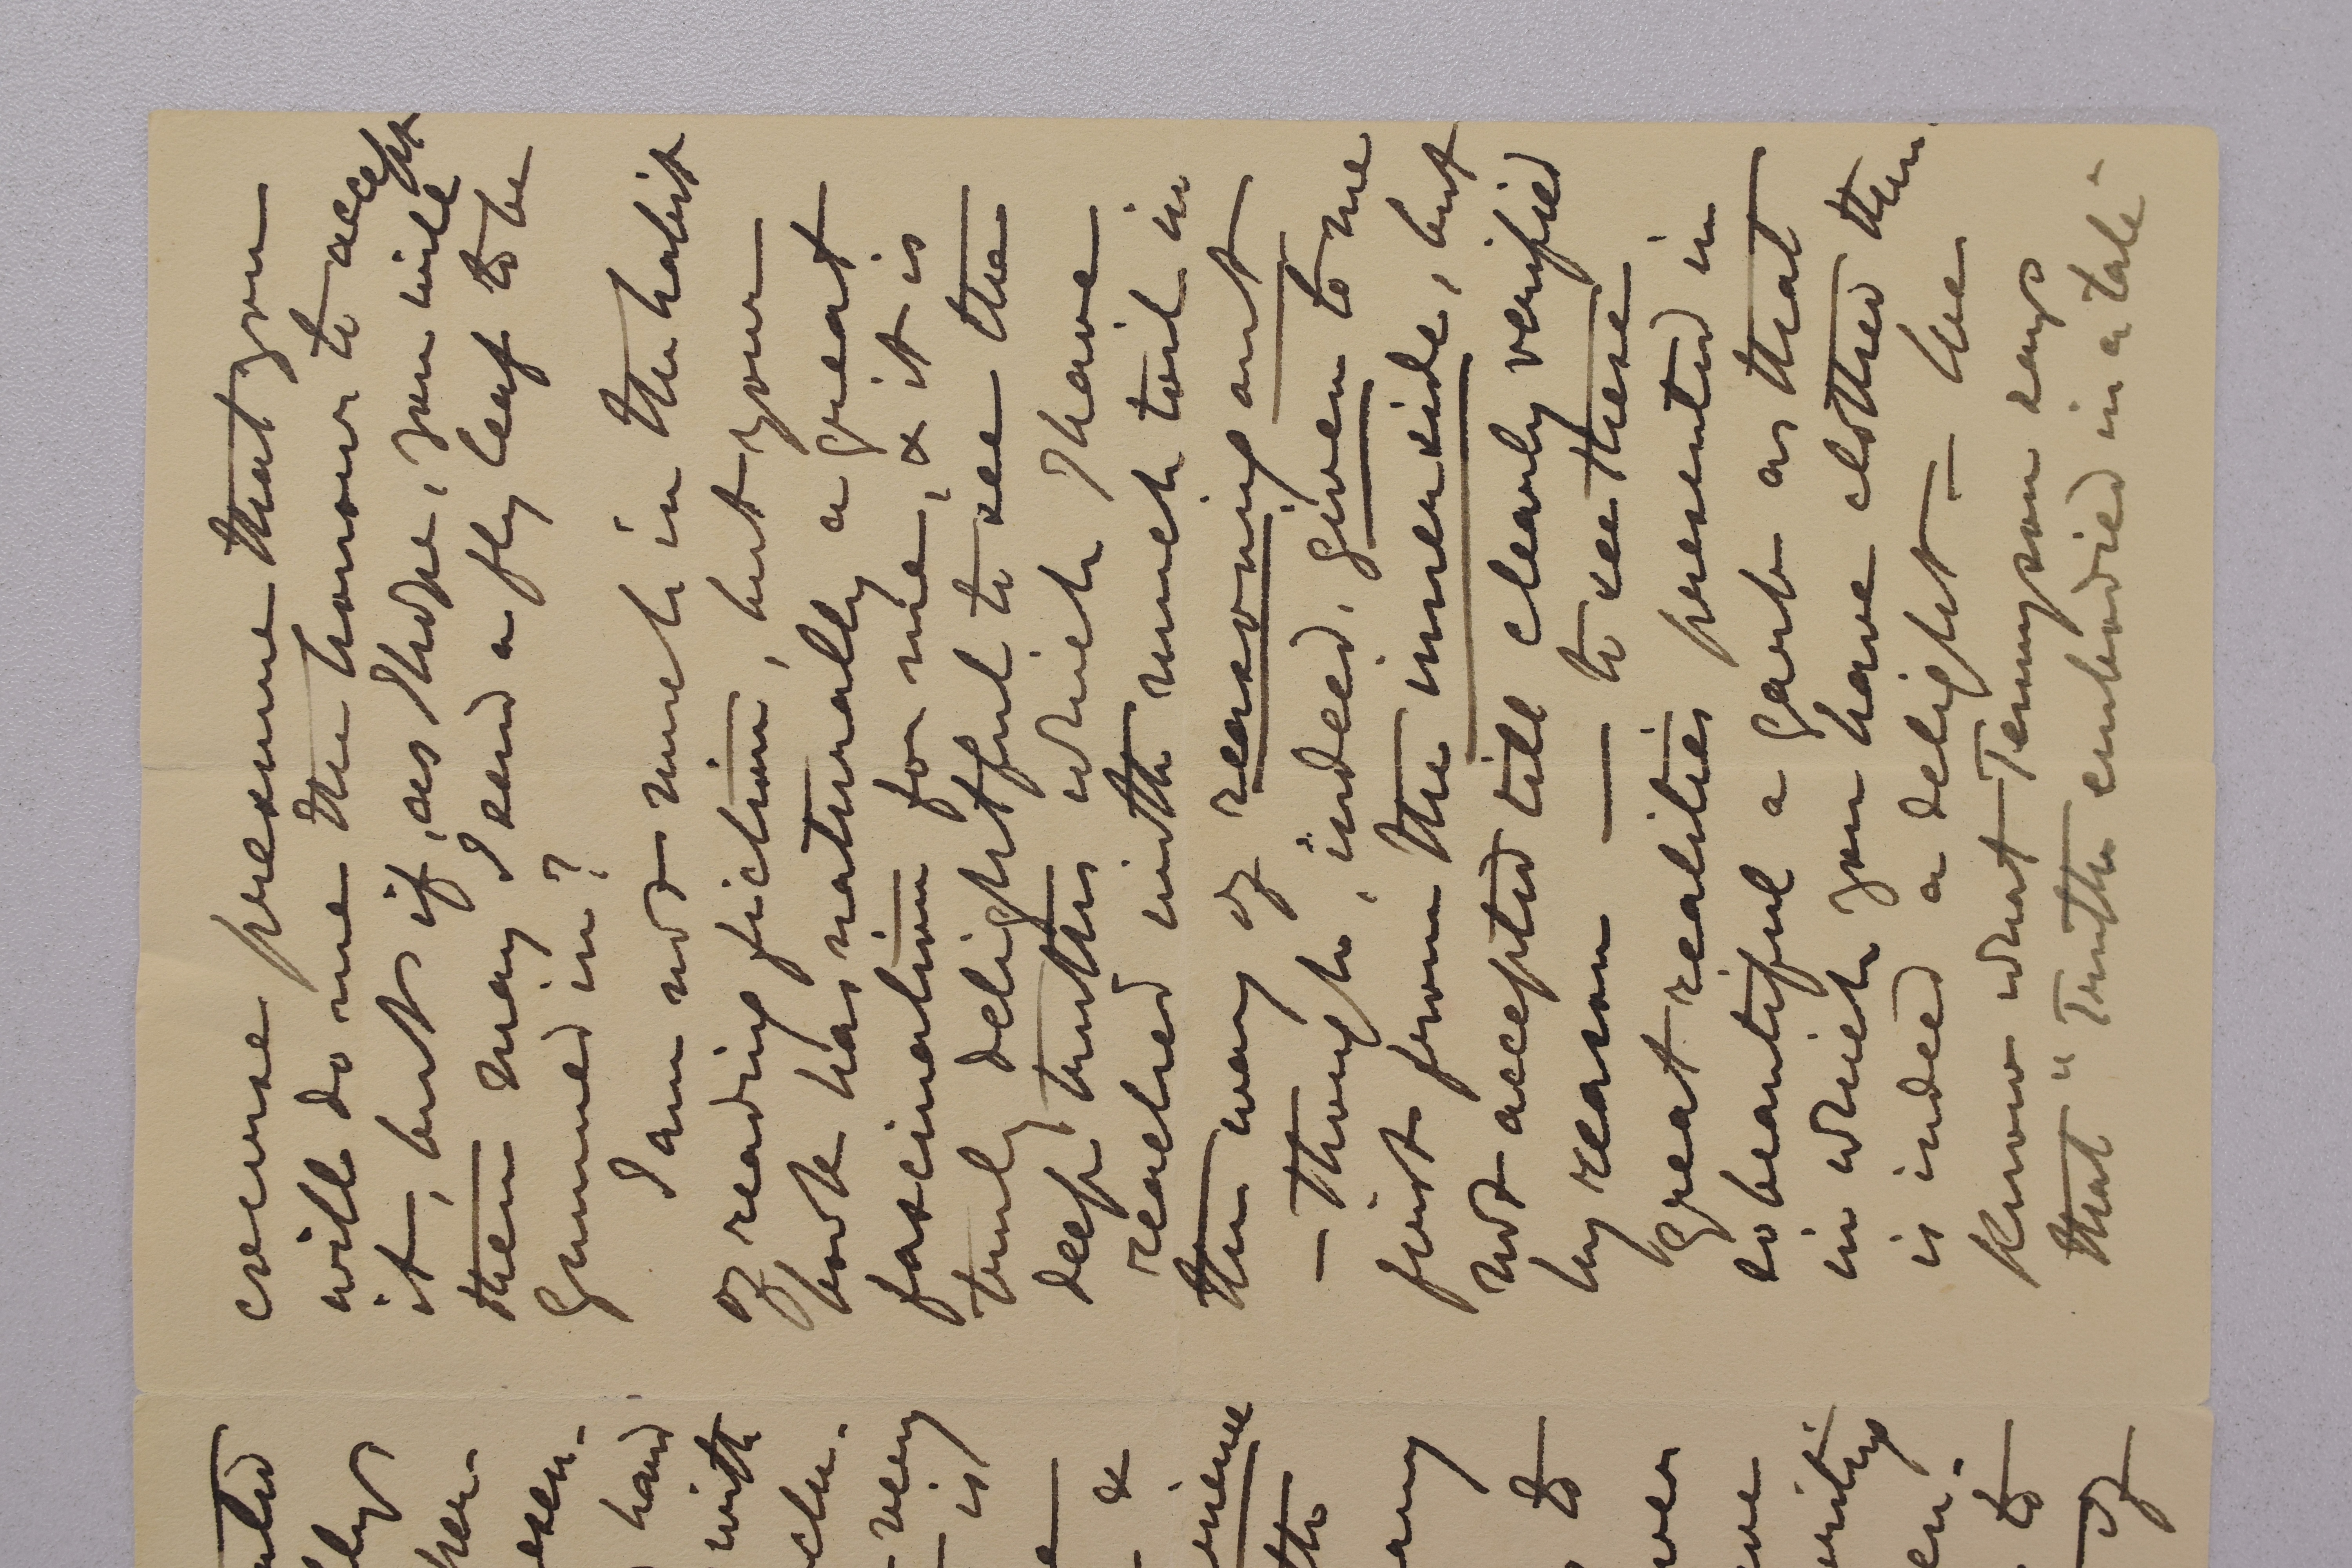 course presume that you
will do me the honour to accept
it, but if, as I hope, you will
then may I send a fly leaf to be
gummed in?
I am not much in the habit
of reading fiction, but your
book has naturally a great
fascination for me, & it is
truly delightful to see the
deep truths which I have
reached with much toil in
the way of reasoning out
- though, indeed, given to me
first from the inner side, but
not accepted till clearly verified
by reason — to see these
great realities presented in
so beautiful a garb as that
in which you have clothed them.
is indeed a delight - we
know what Tennyson says
that "Truth embodied in a tale"
with
very
is
&
to
any
to
of